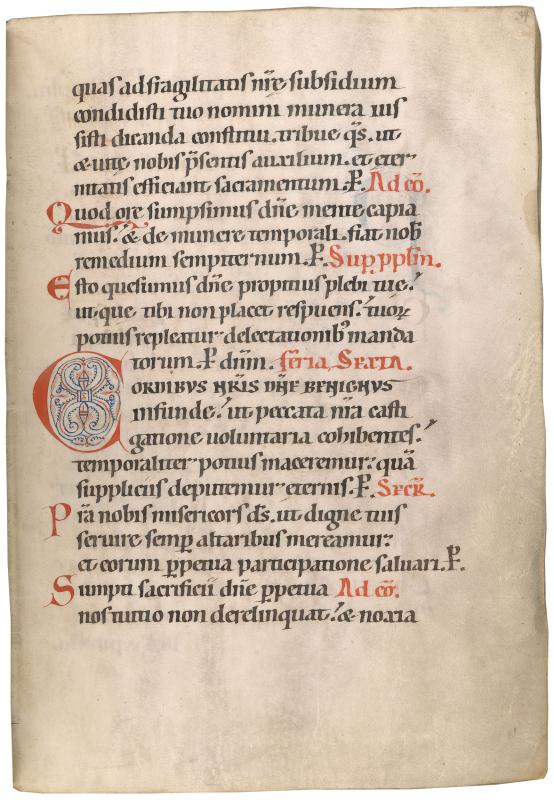 34
quas ad fragilitatis nr̄ę subsidium
condidisti tuo nomini munera ius
sisti dicanda constitui. tribue q̄s. ut
& uitę nobis p̄sentis auxilium. et eter
nitatis efficiant sacramentum. P̱. Ad cō.
Quod ore sumpsimus dn̄e mente capia
mus. & de munere temporali. fiat nob̄
remedium sempiternum. P̱. Sup̱ pplm̄.
Esto quesumus dn̄e propitius plebi tuę.
ut quę tibi non placet respuens. tuoꝝ
potius repleatur delectationibꝰ manda
torum. P̱ dn̄m. feria Sexta.
CORDIBVS NR̄IS DN̄E BENIGNVS
infunde. ut peccata nr̄a casti
gatione uoluntaria cohibentes.
temporaliter potius maceremur. quā
suppliciis deputemur eternis. P̱. Secr̄.
Pr̄a nobis misericors ds̄. ut digne tuis
seruire semp̱ altaribus mereamur.
et eorum p̱petua participatione saluari. P̱.
Sumpti sacrificii dn̄e p̱petua Ad cō.
nos tuitio non derelinquat. & noxia